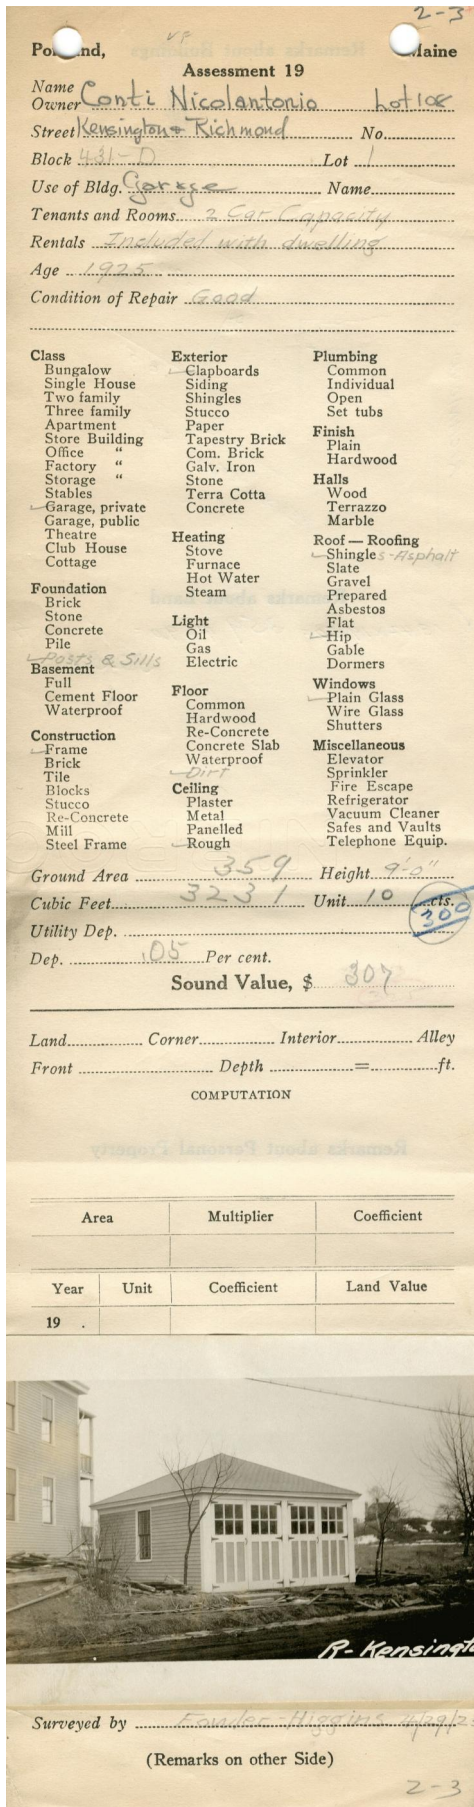 2-3
Portland, Maine
Assessment 19
Name
Owner Conti Nicolantonio Lot 108
Street Kensington & Richmond No.
Block 431-D Lot 1
Use of Bldg. Garage Name
Tenants and Rooms 2 Car Capacity
Rentals Included with dwelling
Age 1925
Condition of Repair Good
Class
Bungalow
Single House
Two family
Three family
Apartment
Store Building
Office "
Factory "
Storage "
Stables
Garage, private
Garage, public
Theatre
Club House
Cottage
Foundation
Brick
Stone
Concrete
Pile
Posts & Sills
Basement
Full
Cement Floor
Waterproof
Construction
Frame
Brick
Tile
Blocks
Stucco
Re-Concrete
Mill
Steel Frame
Exterior
Clapboards
Siding
Shingles
Stucco
Paper
Tapestry Brick
Com. Brick
Galv. Iron
Stone
Terra Cotta
Concrete
Heating
Stove
Furnace
Hot Water
Steam
Light
Oil
Gas
Electric
Floor
Common
Hardwood
Re-Concrete
Concrete Slab
Waterproof
Dirt
Ceiling
Plaster
Metal
Panelled
Rough
Plumbing
Common
Individual
Open
Set tubs
Finish
Plain
Hardwood
Halls
Wood
Terrazzo
Marble
Roof — Roofing
Shingles-Asphalt
Slate
Gravel
Prepared
Asbestos
Flat
Hip
Gable
Dormers
Windows
Plain Glass
Wire Glass
Shutters
Miscellaneous
Elevator
Sprinkler
Fire Escape
Refrigerator
Vacuum Cleaner
Safes and Vaults
Telephone Equip.
Ground Area 359 Height 9'-0"
Cubic Feet 3231 Unit 10 cts.
300
Utility Dep.
Dep. .05 Per cent.
Sound Value, $ 307
Land Corner Interior Alley
Front Depth = ft.
COMPUTATION
Area Multiplier Coefficient
Year Unit Coefficient Land Value
19 .
R-Kensingt
Surveyed by Higgins
(Remarks on other Side)
2-3